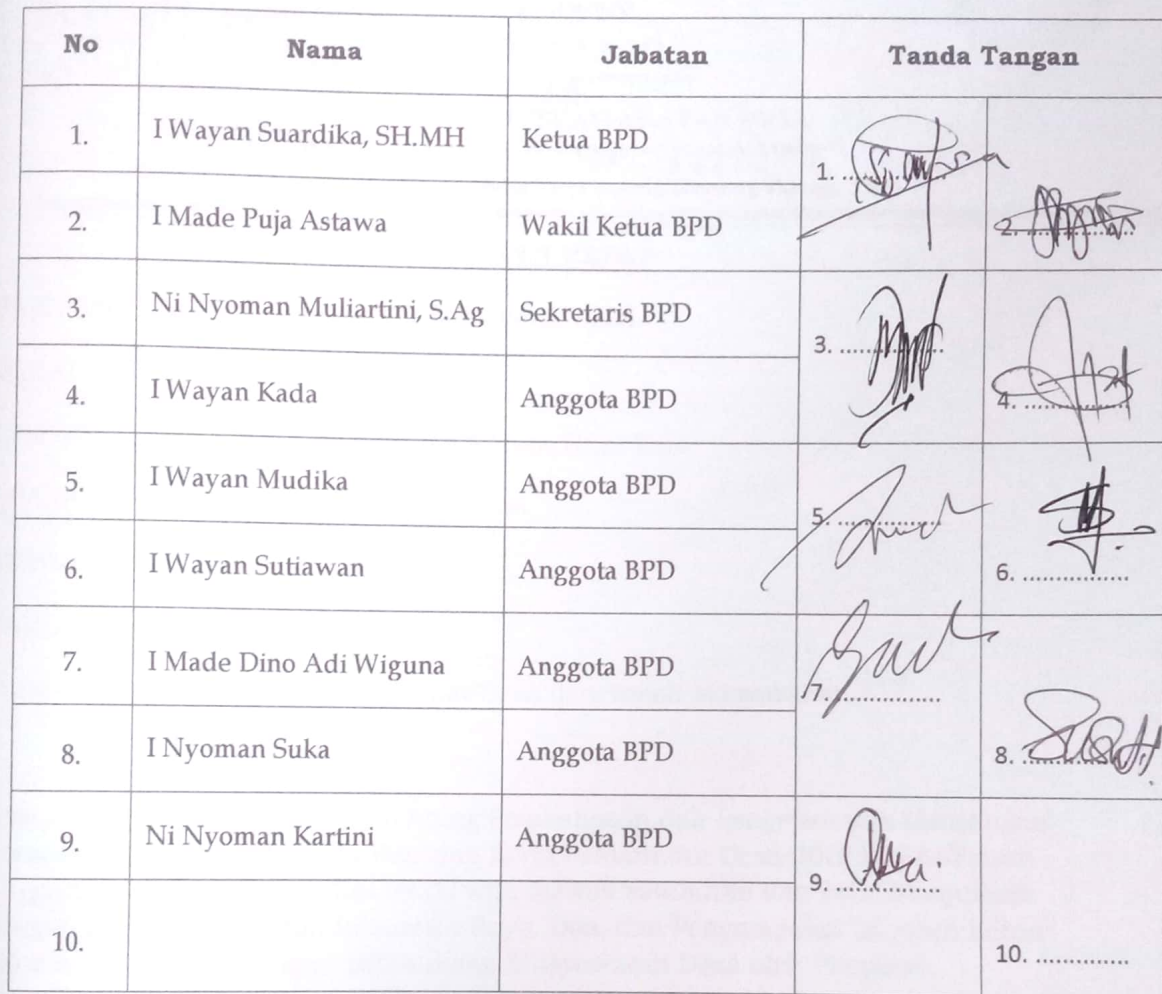 No Nama Jabatan Tanda Tangan
1. I Wayan Suardika, SH.MH Ketua BPD 1. ..................
2. I Made Puja Astawa Wakil Ketua BPD 2. ..................
3. Ni Nyoman Muliartini, S.Ag Sekretaris BPD 3. ..................
4. I Wayan Kada Anggota BPD 4. ..................
5. I Wayan Mudika Anggota BPD 5. ..................
6. I Wayan Sutiawan Anggota BPD 6. ..................
7. I Made Dino Adi Wiguna Anggota BPD 7. ..................
8. I Nyoman Suka Anggota BPD 8. ..................
9. Ni Nyoman Kartini Anggota BPD 9. ..................
10. 10. ..................